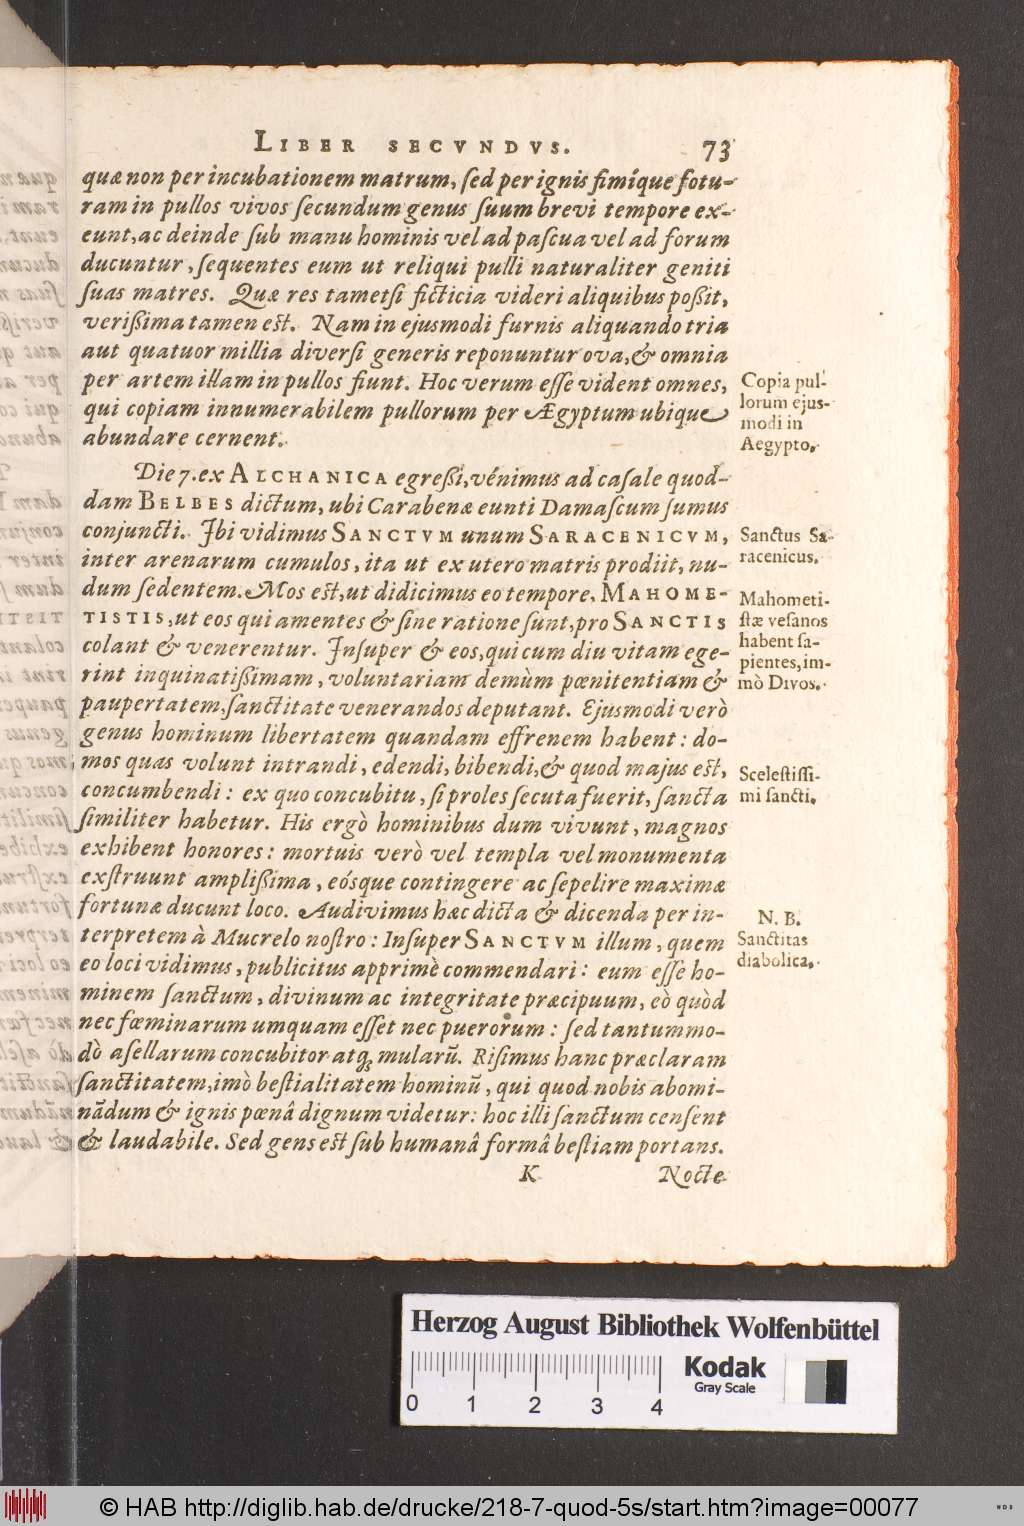 LIBER SECVNDVS. 73
quæ non per incubationem matrum, sed per ignis fimíque fotu-
ram in pullos vivos secundum genus suum brevi tempore ex-
eunt, ac deinde sub manu hominis vel ad pascua vel ad forum
ducuntur, sequentes eum ut reliqui pulli naturaliter geniti
suas matres. Quæ res tametsi ficticia videri aliquibus poßit,
verißima tamen est. Nam in ejusmodi furnis aliquando tria
aut quatuor millia diversi generis reponuntur ova, & omnia
per artem illam in pullos fiunt. Hoc verum esse vident omnes,
qui copiam innumerabilem pullorum per Ægyptum ubique
abundare cernent.
Copia pul-
lorum ejus-
modi in
Aegypto.
Die 7. ex ALCHANICA egreßi, vénimus ad casale quod-
dam BELBES dictum, ubi Carabenæ eunti Damascum sumus
conjuncti. Ibi vidimus SANCTVM unum SARACENICVM,
inter arenarum cumulos, ita ut ex utero matris prodiit, nu-
dum sedentem. Mos est, ut didicimus eo tempore, MAHOME-
TISTIS, ut eos qui amentes & sine ratione sunt, pro SANCTIS
colant & venerentur. Insuper & eos, qui cum diu vitam ege-
rint inquinatißimam, voluntariam demùm pœnitentiam &
paupertatem, sanctitate venerandos deputant. Ejusmodi verò
genus hominum libertatem quandam effrenem habent: do-
mos quas volunt intrandi, edendi, bibendi, & quod majus est,
concumbendi: ex quo concubitu, si proles secuta fuerit, sancta
similiter habetur. His ergò hominibus dum vivunt, magnos
exhibent honores: mortuis verò vel templa vel monumenta
exstruunt amplißima, eósque contingere ac sepelire maximæ
fortunæ ducunt loco. Audivimus hæc dicta & dicenda per in-
terpretem à Mucrelo nostro: Insuper SANCTVM illum, quem
eo loci vidimus, publicitus apprimè commendari: eum esse ho-
minem sanctum, divinum ac integritate præcipuum, eò quòd
nec fœminarum umquam esset nec puerorum: sed tantummo-
dò asellarum concubitor atq; mularū. Risimus hanc præclaram
sanctitatem, imò bestialitatem hominū, qui quod nobis abomi-
nādum & ignis pœnâ dignum videtur: hoc illi sanctum censent
& laudabile. Sed gens est sub humanâ formâ bestiam portans.
Sanctus Sa-
racenicus.
Mahometi-
stæ vesanos
habent sa-
pientes, im-
mò Divos.
Scelestissi-
mi sancti.
N. B.
Sanctitas
diabolica.
K Nocte
Herzog August Bibliothek Wolfenbüttel
Kodak
Gray Scale
0 1 2 3 4
© HAB http://diglib.hab.de/drucke/218-7-quod-5s/start.htm?image=00077